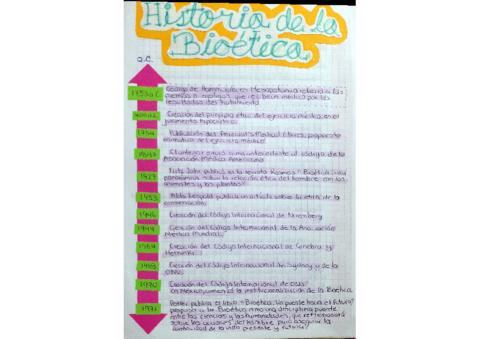 Historia de la
Bioética
a.C.
1753 a.C
Código de Hammurabi en Mesopotamia
médico por los
resultados del tratamiento
Creación del principio ético del ejercicio médico, en el
juramento hipocrático
1794
Publicación del Percival's Medical Ethics,
normativa del ejercicio médico
1847
como antecedente al código de la
Asociación Médica Americana
1927
Fritz Jahr publicó en la revista Kosmos "Bioética: una
panorámica sobre la relación ética del hombre con los
animales y las plantas"
Aldo Leopold publica un artículo sobre la ética de la
conservación
1946
Creación del Código Internacional de Nuremberg
Creación del Código Internacional de la Asociación
Médica Mundial
1964
Creación del Código Internacional de Ginebra y
Helsinki
Creación del Código Internacional de Sydney y de la
1970
Creación del Código Internacional de Oslo
En México, la institucionalización de la Bioética
1971
Potter publica el texto "Bioética: Un puente hacia el futuro",
propone a la Bioética como una disciplina puente
entre las ciencias y las humanidades, que
sobre las acciones del hombre para asegurar la
continuidad de la vida presente y futura